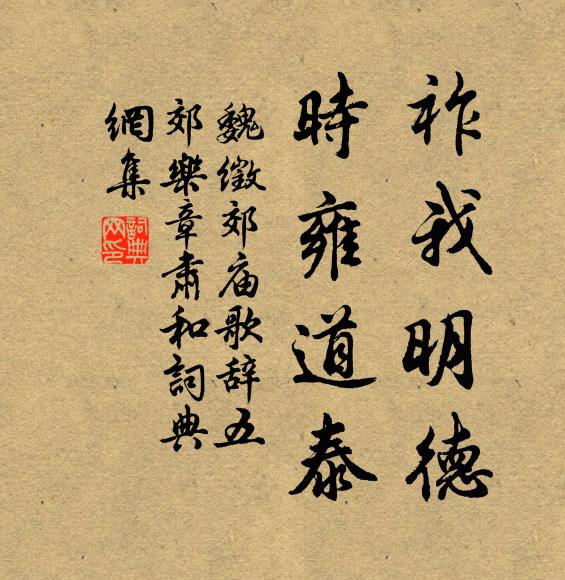 祚我明德
時雍道泰
魏徵郊庙歌辞五
郊樂章肅和詞典
網集
詞典
网印